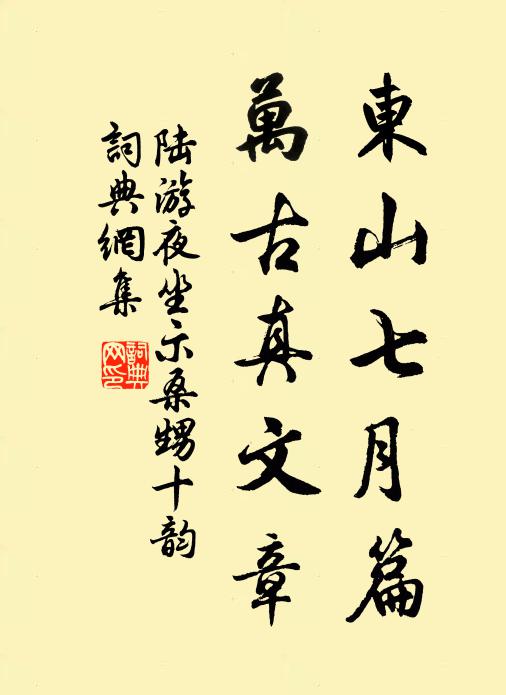 東山七月篇
萬古真文章
陆游夜坐示桑甥十韵
詞典網集
詞典網印